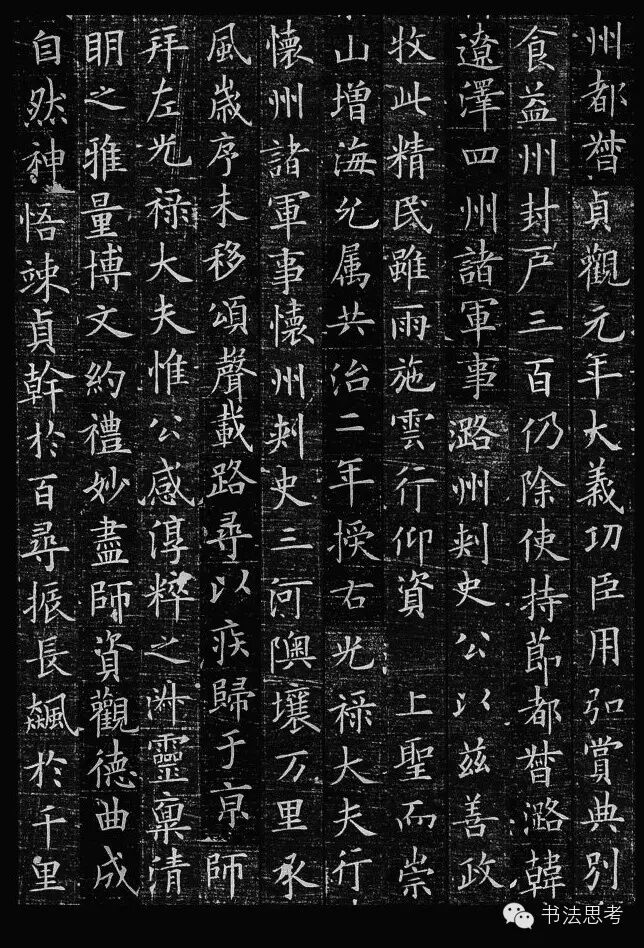 州都督貞觀元年大義功臣用弘賞典別
食益州封戶三百仍除使持節都督潞韓
遼澤四州諸軍事潞州刺史公以茲善政
牧此精民雖雨施雲行仰資 上聖而崇
山增海允属共治二年授右光祿大夫行
懷州諸軍事懷州刺史三河隩壤万里承
風歲序未移頌聲載路尋以疾歸于京師
拜左光祿大夫惟公感淳粹之沖靈稟清
明之雅量博文約禮妙盡師資觀德曲成
自然神悟竦貞幹於百尋振長飆於千里
书法思考